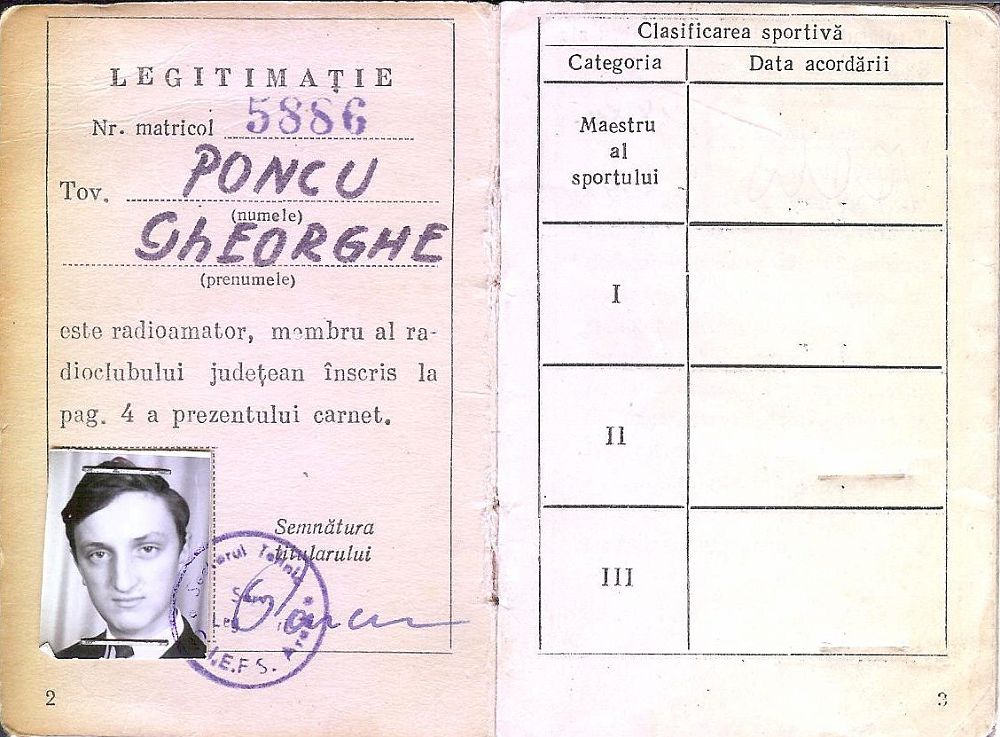 LEGITIMAȚIE
Nr. matricol 5886
Tov. PONCU
(numele)
GhEORGHE
(prenumele)
este radioamator, membru al ra-
dioclubului județean înscris la
pag. 4 a prezentului carnet.
Semnătura
titularului
Poncu
Arad
.E.F.S.
2
Clasificarea sportivă
Categoria Data acordării
Maestru
al
sportului
I
II
III
3